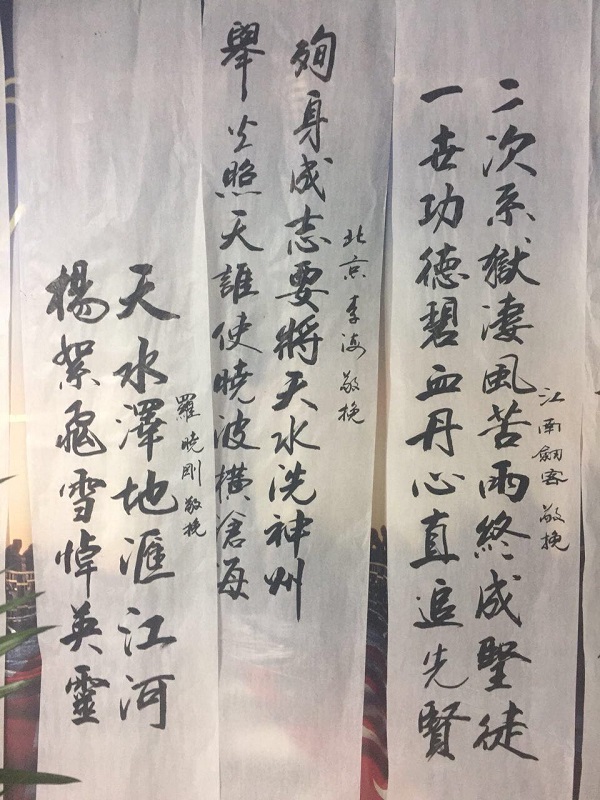 江南劍客 敬挽
二次系獄淒風苦雨終成聖徒
一世功德碧血丹心直追先賢
北京李海敬挽
殉身成志要將天水洗神州
舉火照天誰使曉波橫滄海
羅曉剛敬挽
天水澤地滙江河
楊絮飛雪悼英靈